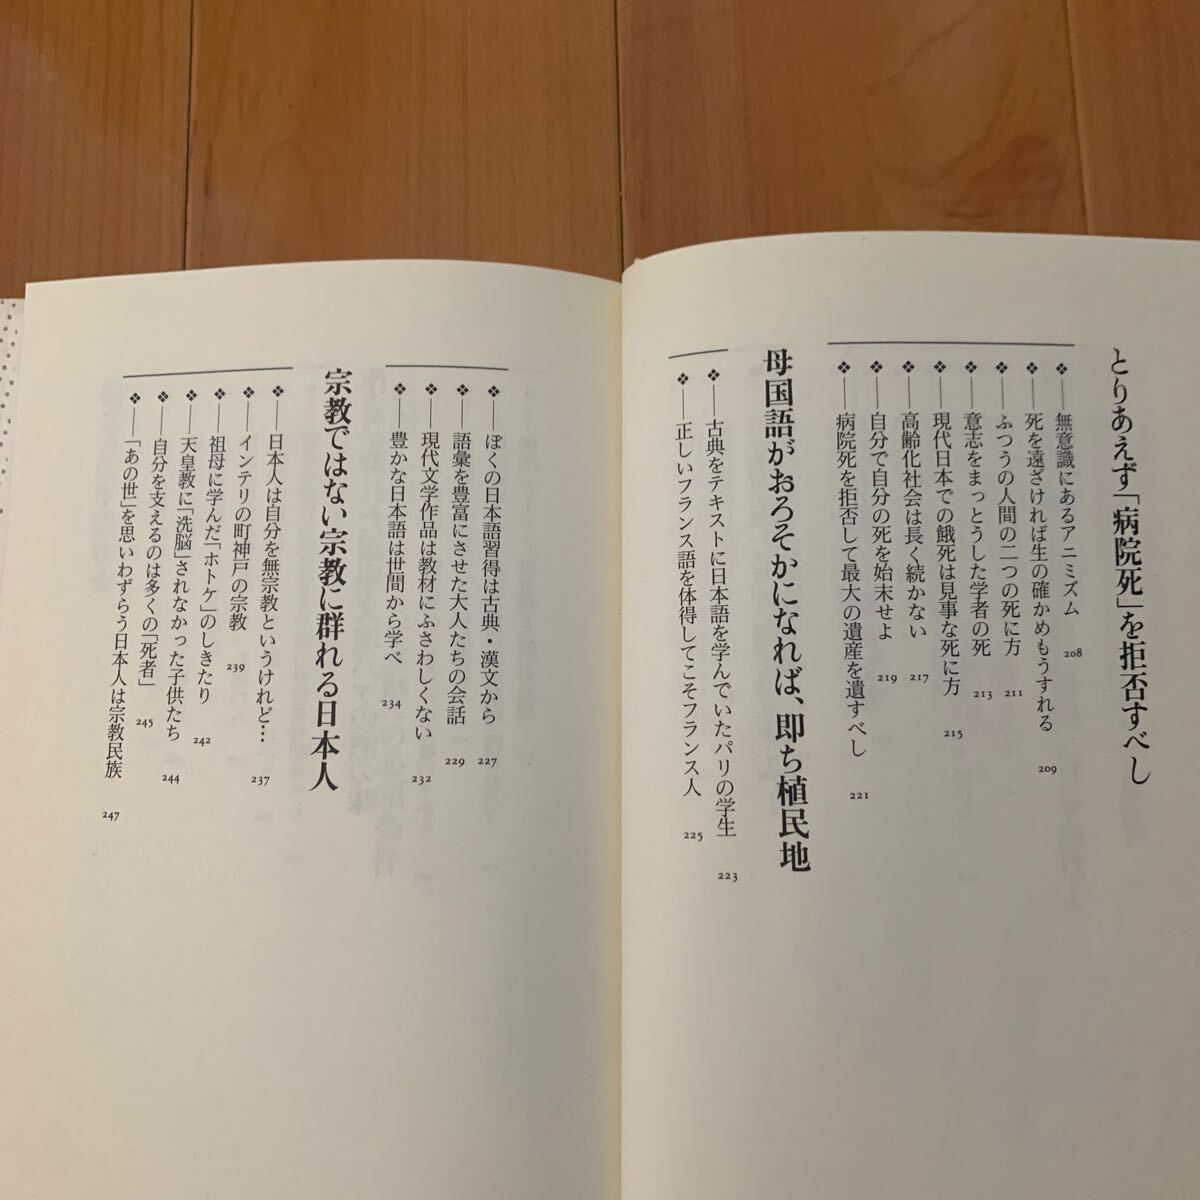 とりあえず「病院死」を拒否すべし
❖——無意識にあるアニミズム 208
❖——死を遠ざければ生の確かめもうすれる 209
❖——ふつうの人間の二つの死に方 211
❖——意志をまっとうした学者の死 213
❖——現代日本での餓死は見事な死に方 215
❖——高齢化社会は長く続かない 217
❖——自分で自分の死を始末せよ 219
❖——病院死を拒否して最大の遺産を遺すべし 221
母国語がおろそかになれば、即ち植民地
❖——古典をテキストに日本語を学んでいたパリの学生 223
❖——正しいフランス語を体得してこそフランス人 225
❖——ぼくの日本語習得は古典・漢文から 227
❖——語彙を豊富にさせた大人たちの会話 229
❖——現代文学作品は教材にふさわしくない 232
❖——豊かな日本語は世間から学べ 234
宗教ではない宗教に群れる日本人
❖——日本人は自分を無宗教というけれど… 237
❖——インテリの町神戸の宗教 239
❖——祖母に学んだ「ホトケ」のしきたり 242
❖——天皇教に「洗脳」されなかった子供たち 244
❖——自分を支えるのは多くの「死者」 245
❖——「あの世」を思いわずらう日本人は宗教民族 247